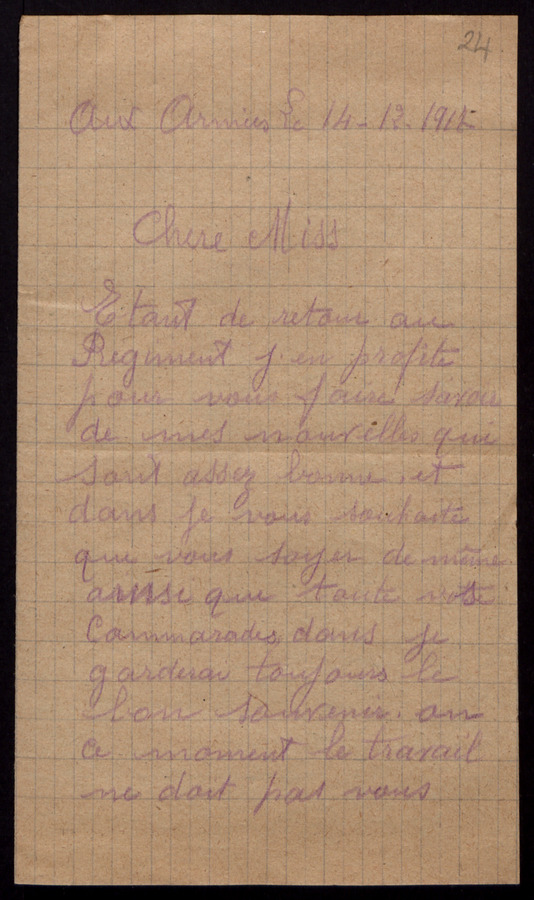 24.
Aux Armées Le 14-12-1915
Chere Miss
Etant de retour au
Régiment j'en profite
pour vous faire savoir
de mes nouvelles qui
sont assez bonne, et
dans je vous souhaite
que vous soyer de même
ainsi que toute votre
Cammarades dans je
garderai toujours le
bon souvenir. on
ce moment le travail
ne doit pas vous